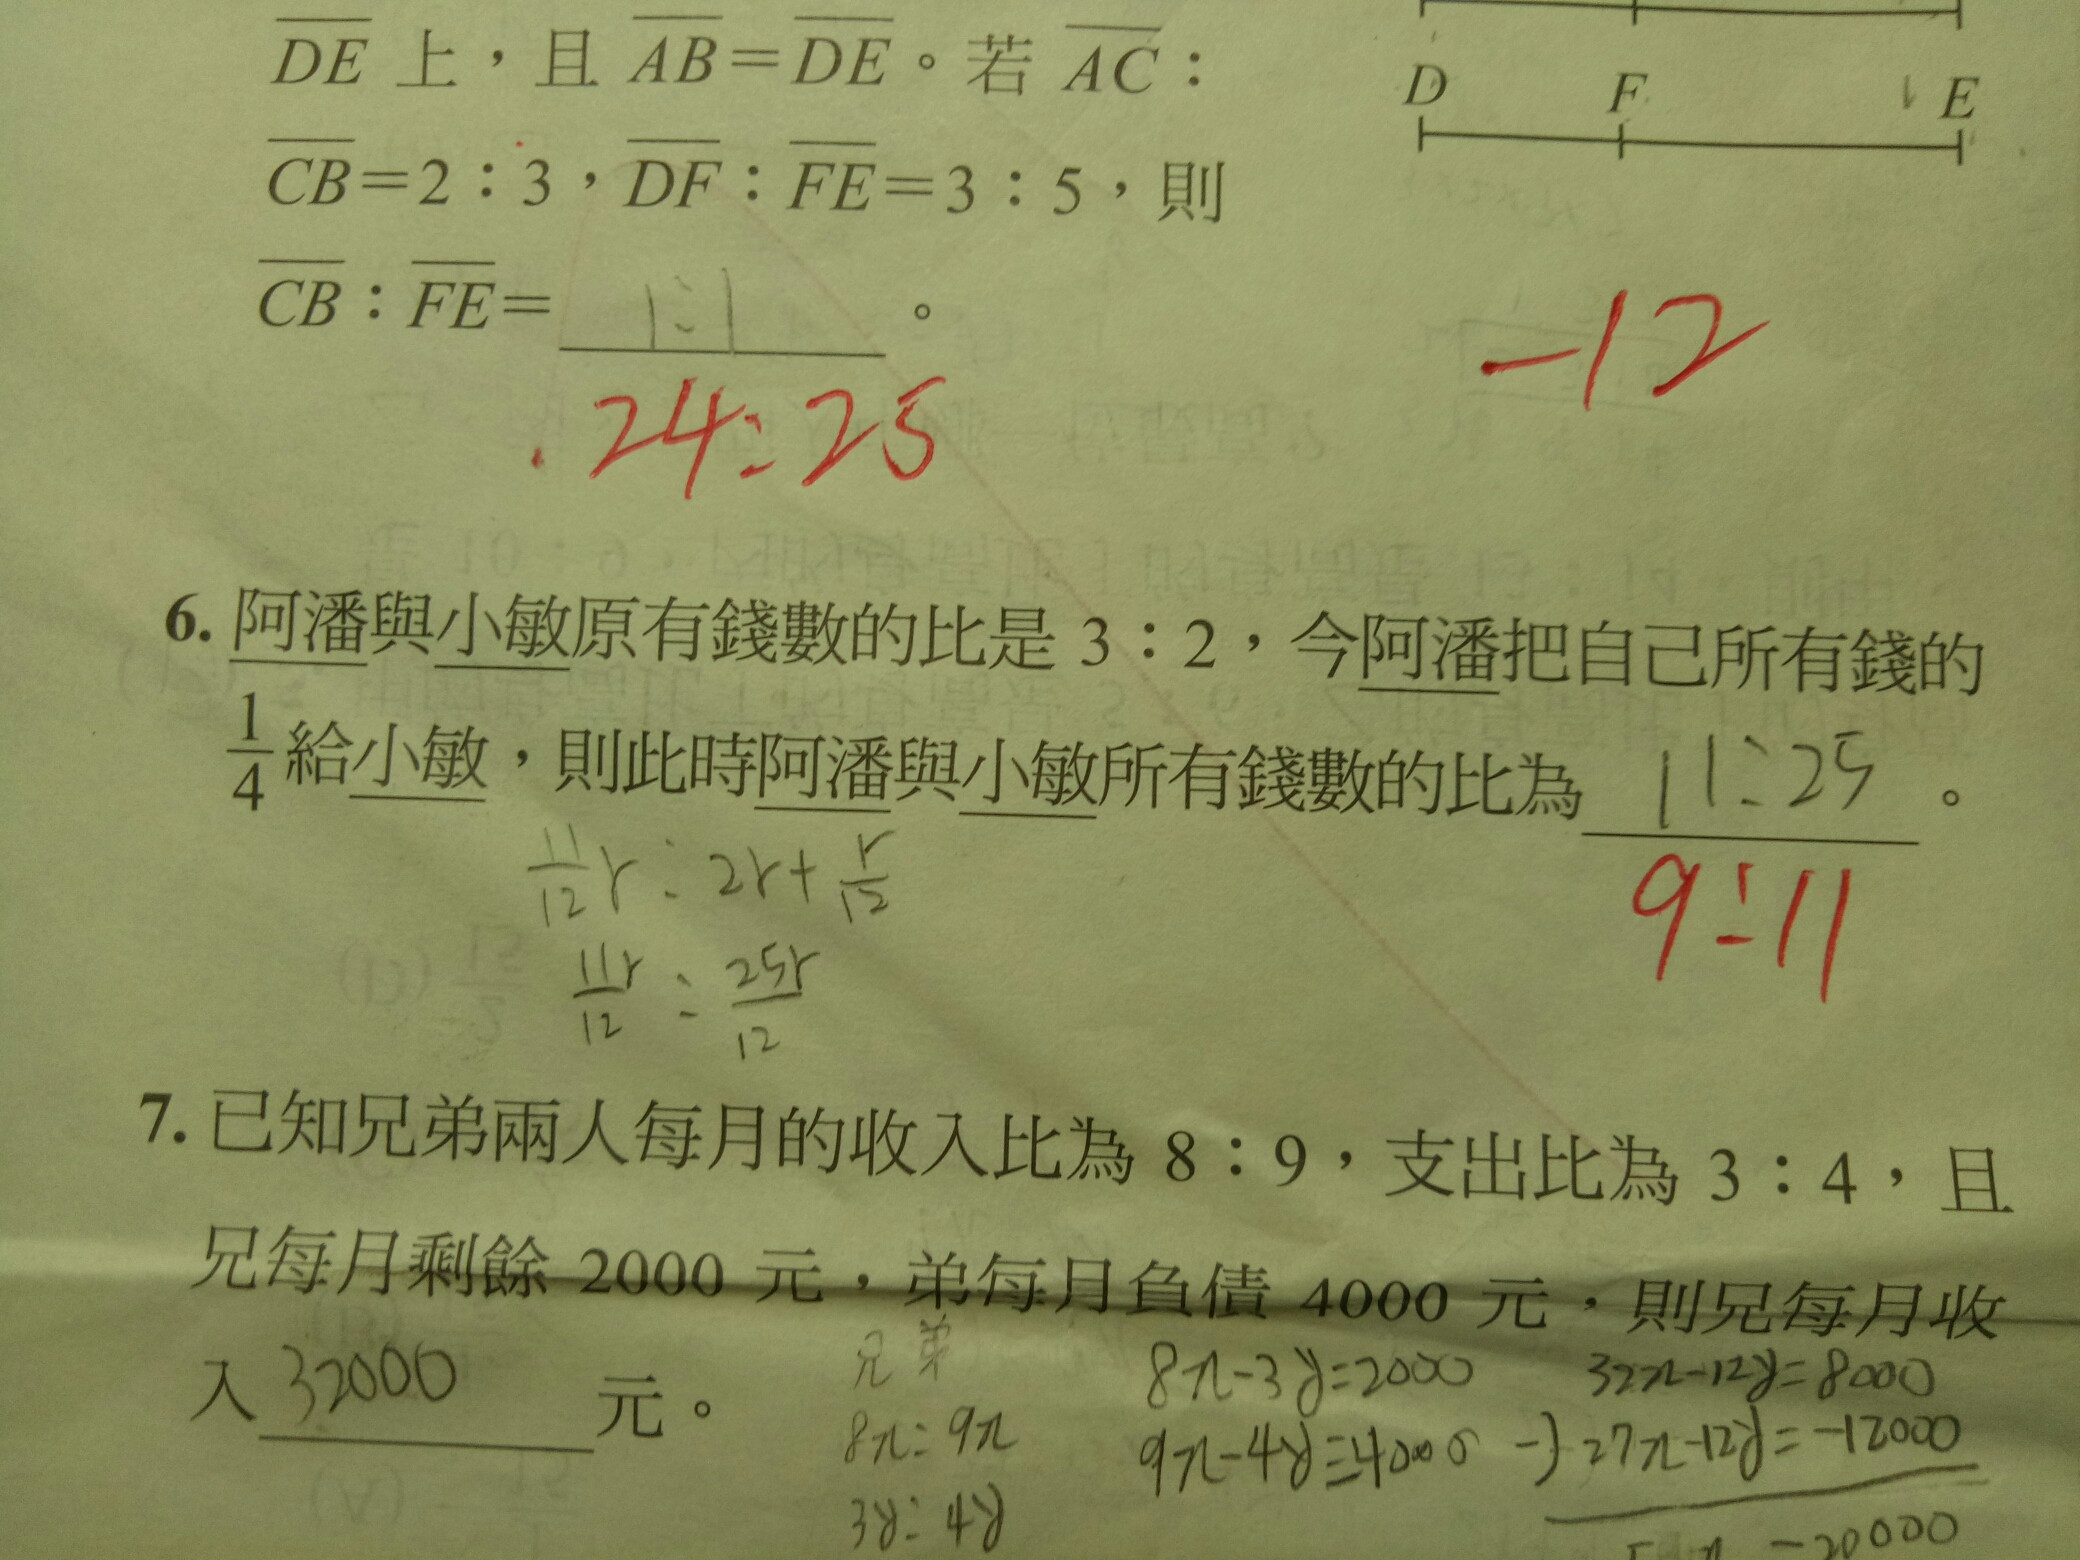 DE 上，且 AB＝DE。若 AC：
CB＝2：3，DF：FE＝3：5，則
CB：FE＝ 1:1 。
24:25
D F E
-12
6. 阿潘與小敏原有錢數的比是 3：2，今阿潘把自己所有錢的
1/4 給小敏，則此時阿潘與小敏所有錢數的比為 11:25 。
9:11
11/12 r : 2r + r/12
11r/12 : 25r/12
7. 已知兄弟兩人每月的收入比為 8：9，支出比為 3：4，且
兄每月剩餘 2000 元，弟每月負債 4000 元，則兄每月收
入 32000 元。
兄 弟
8x:9x
3y:4y
8x-3y=2000
9x-4y=-4000
32x-12y=8000
-) 27x-12y=-12000
20000